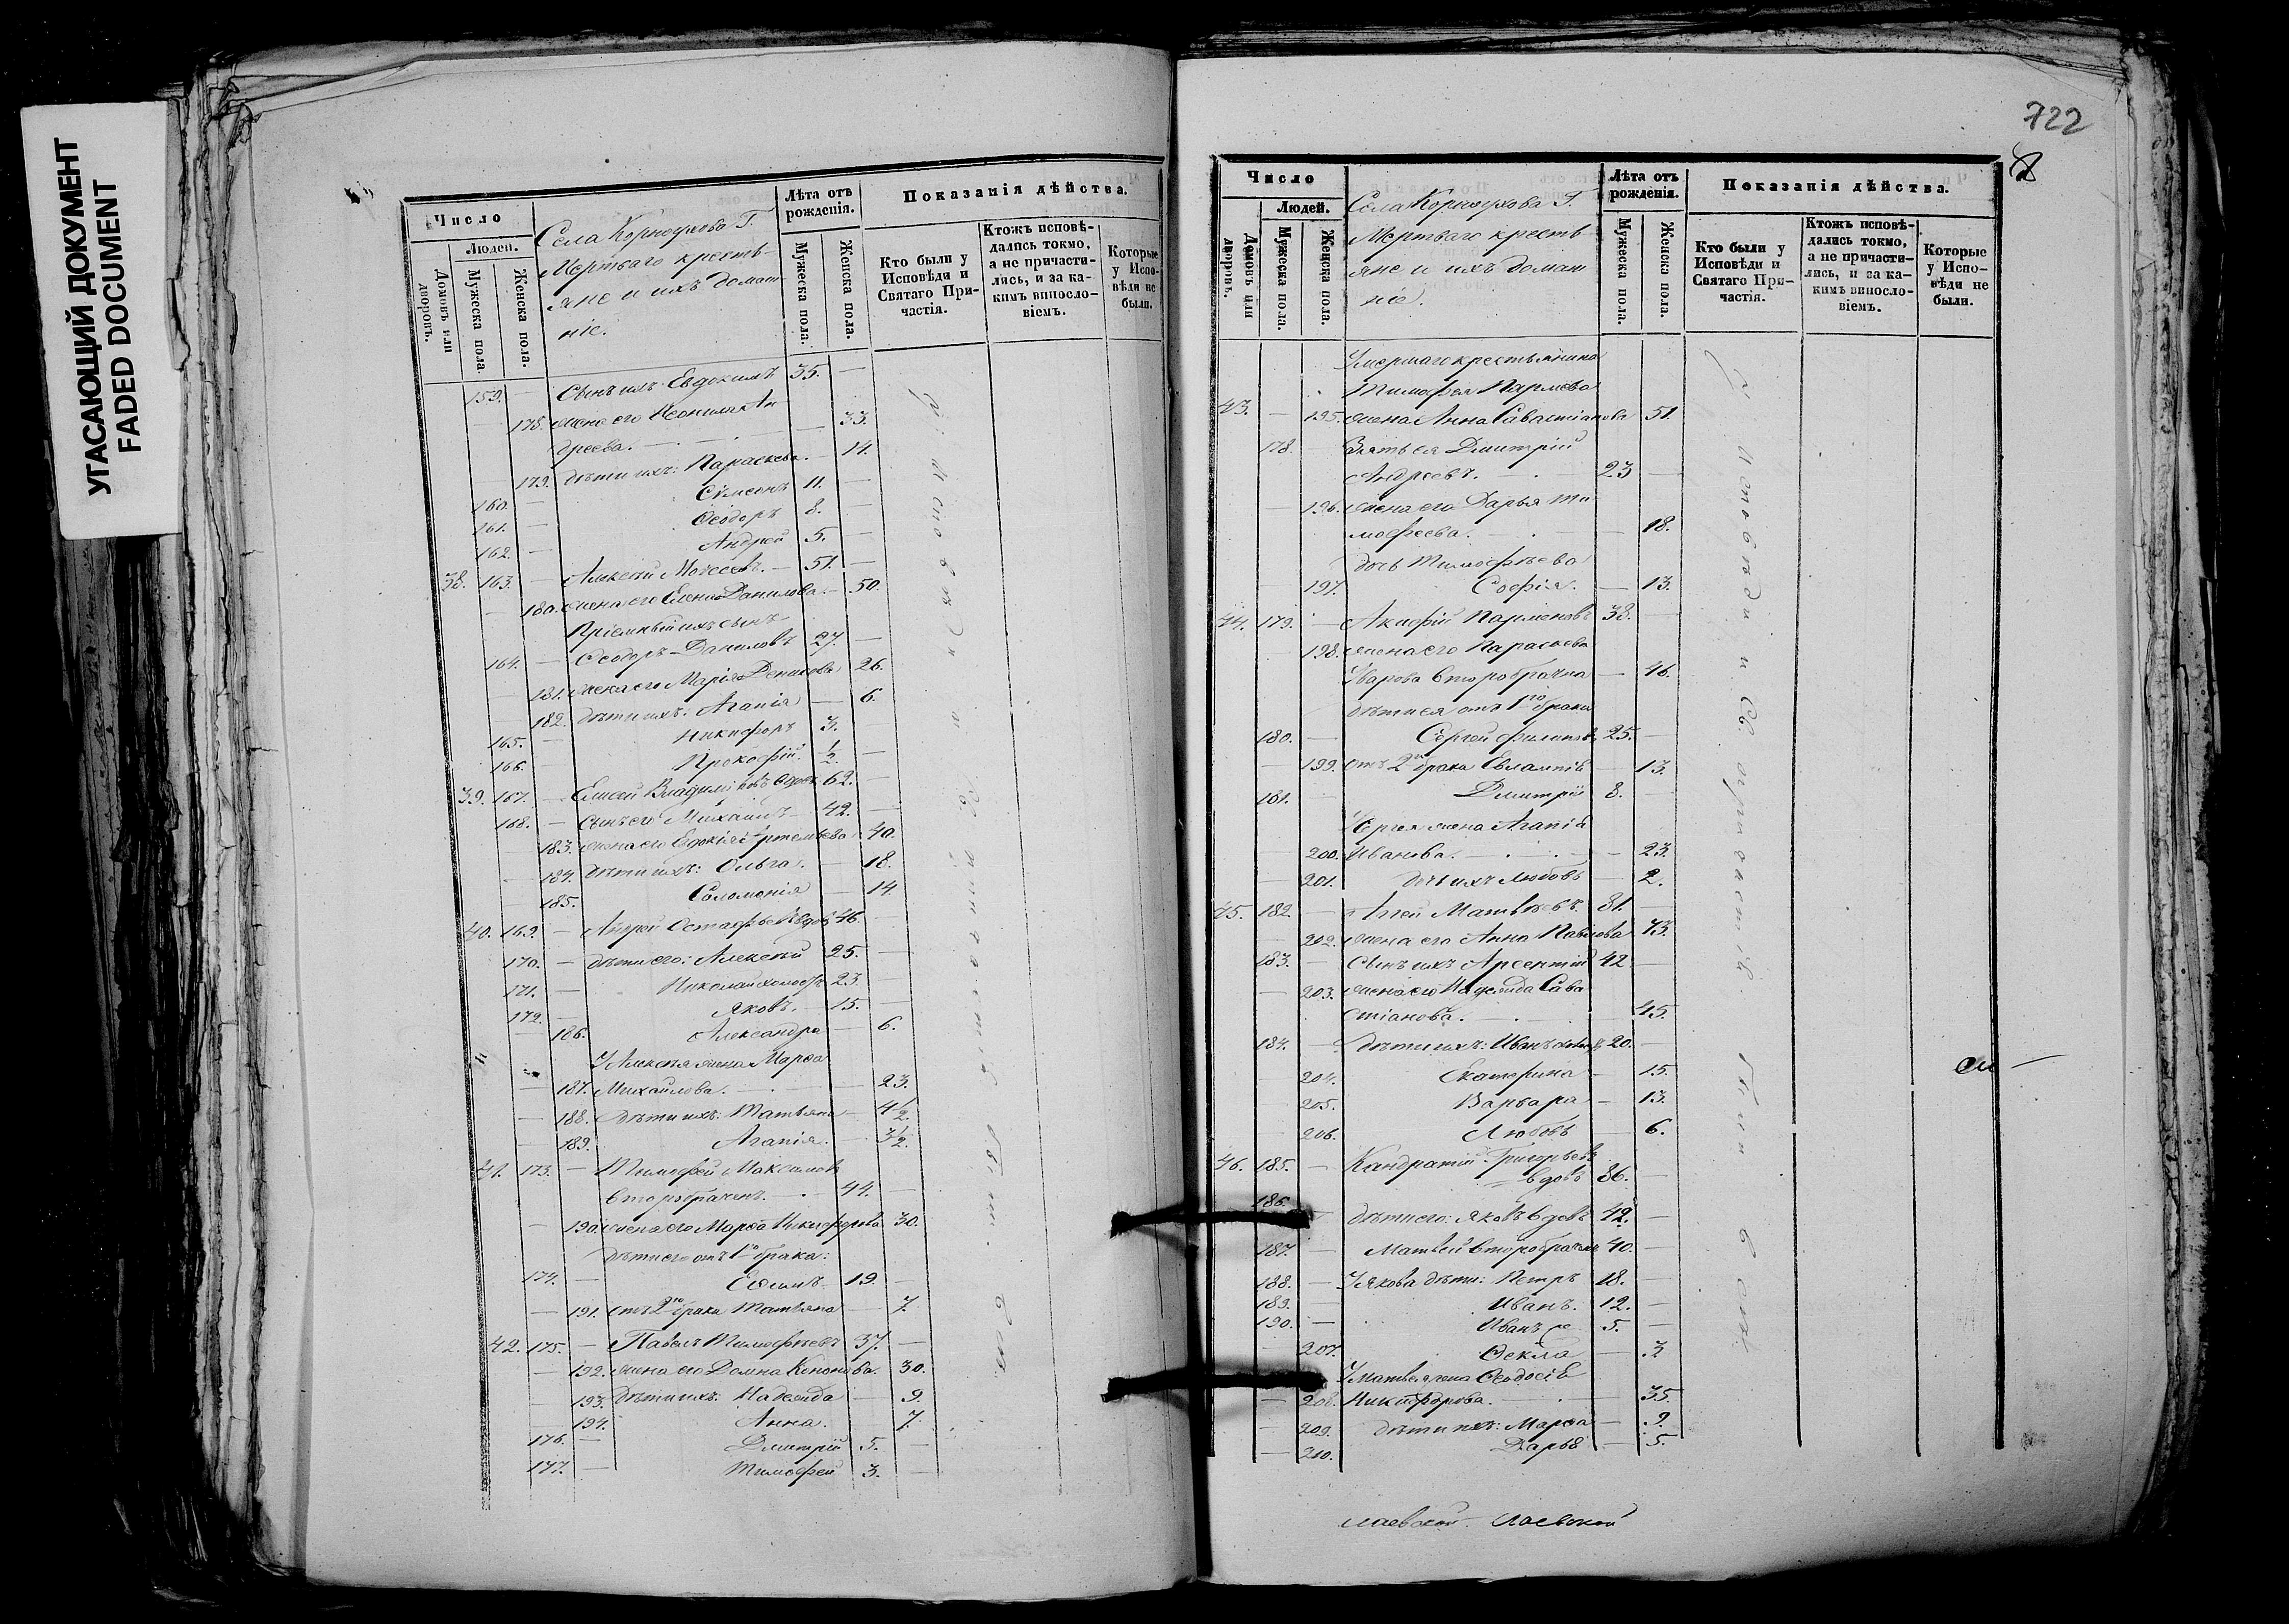 УГАСАЮЩИЙ ДОКУМЕНТ
FADED DOCUMENT
Число
Людей.
Домовъ или дворовъ.
Мужеска пола.
Женска пола.
Села Корноухова Г.
Мертваго кресть-
яне и ихъ домаш-
ніе.
Лѣта отъ рожденія.
Мужеска пола.
Женска пола.
Показанія дѣйства.
Кто были у Исповѣди и Святаго При-частія.
Ктожъ исповѣ-дались токмо, а не причасти-лись, и за ка-кимъ винослo-віемъ.
Которые у Испо-вѣди не были.
159. — Сынъ ихъ Евдокимъ 35. —
— 178. жена его Неонила Ан
дреева. — 33.
— 179. дѣти ихъ: Параскева. — 14.
160. — Симеонъ 11. —
161. — Ѳеодоръ 8. —
162. — Андрей 5. —
38. 163. — Алексѣй Моѵсеевъ. — 51. —
— 180. жена его Елена Данилова. — 50.
Пріемный ихъ сынъ
164. — Ѳеодоръ Даниловъ 27. —
— 181. жена его Марія Денисова 26.
— 182. дѣти ихъ: Агапія — 6.
165. — Никифоръ 3. —
166. — Прокофій. ½ —
39. 167. — Елисей Владиміровъ вдовъ 62. —
168. — Сынъ его Михаилъ 42. —
— 183. жена его Евдокія Артемьева 40.
— 184. дѣти ихъ: Ольга. — 18.
— 185. Соломонія — 14.
40. 169. — Андрей Остафьевъ вдовъ 46. —
170. — дѣти его: Алексѣй 25. —
171. — Николай холостъ 23. —
172. — Яковъ. — 15. —
186. Александра — 6.
У Алексѣя жена Марѳа
— 187. Михайлова. — 23.
— 188. дѣти ихъ: Татьяна — 4½.
— 189. Агапія. 3½.
41. 173. — Тимофей Максимовъ
второбраченъ. — 44. —
— 190. жена его Марѳа Никифорова 30.
дѣти его отъ 1го брака:
174. — Евѳимъ 19. —
— 191. отъ 2го брака Татьяна — 7.
42. 175. — Павелъ Тимофѣевъ 37. —
— 192. жена его Домна Кононова. 30.
193. дѣти ихъ: Надежда — 9.
194. Анна. 7.
176. — Дмитрій 5. —
177. — Тимофей 3. —
У Исповѣди и Св. причастія были всѣ
722
Число
Людей.
Домовъ или дворовъ.
Мужеска пола.
Женска пола.
Села Корноухова Г.
Мертваго кресть-
яне и ихъ домаш
ніе.
Лѣта отъ рожденія.
Мужеска пола.
Женска пола.
Показанія дѣйства.
Кто были у Исповѣди и Святаго При-частія.
Ктожъ исповѣ-дались токмо, а не причасти-лись, и за ка-кимъ винослo-віемъ.
Которые у Испо-вѣди не были.
Умершаго крестьянина
Тимофея Пармена
43. — 195. жена Анна Савастіанова 51.
178. Зять ея Дмитрій
Андреевъ. — 23 —
— 196. жена его Дарья Ти
мофеева. — 18.
дочь Тимофѣева
197. Софія. — 13.
44. 179. — Акифій Парменовъ 38. —
— 198. жена его Параскева
Уварова второбрачна — 46.
дѣти ея отъ 1го брака
180. — Сергей Филиповъ 25. —
— 199. отъ 2го брака Евлампія — 13.
181. — Дмитрій 8. —
У Сергея жена Агапія
200. Иванова. — 23.
— 201. дочь ихъ Любовь — 2.
45. 182. — Агей Матвѣевъ. 81. —
— 202. жена его Анна Павлова 73.
183. — Сынъ ихъ Арсентій 42 —
— 203. жена его Надежда Сава
стіанова. — 45.
184. — дѣти ихъ: Иванъ холостъ 20. —
204. Екатерина — 15.
— 205. Варвара — 13.
— 206. Любовь — 6.
46. 185. — Кандратій Григорьевъ
вдовъ 86. —
186. — дѣти его: Яковъ вдовъ 42. —
187. — Матвей второбраченъ 40. —
188. — У Якова дѣти: Петръ 18. —
189. — Иванъ. 12. —
190. — Иванъ же 5. —
207. Ѳекла — 3
У Матвея жена Ѳеодосія
— 208. Никифорова. — 35.
— 209. дѣти ихъ: Марѳа — 9.
— 210. Дарья — 5.
У Исповѣди и Св. причастія были всѣ